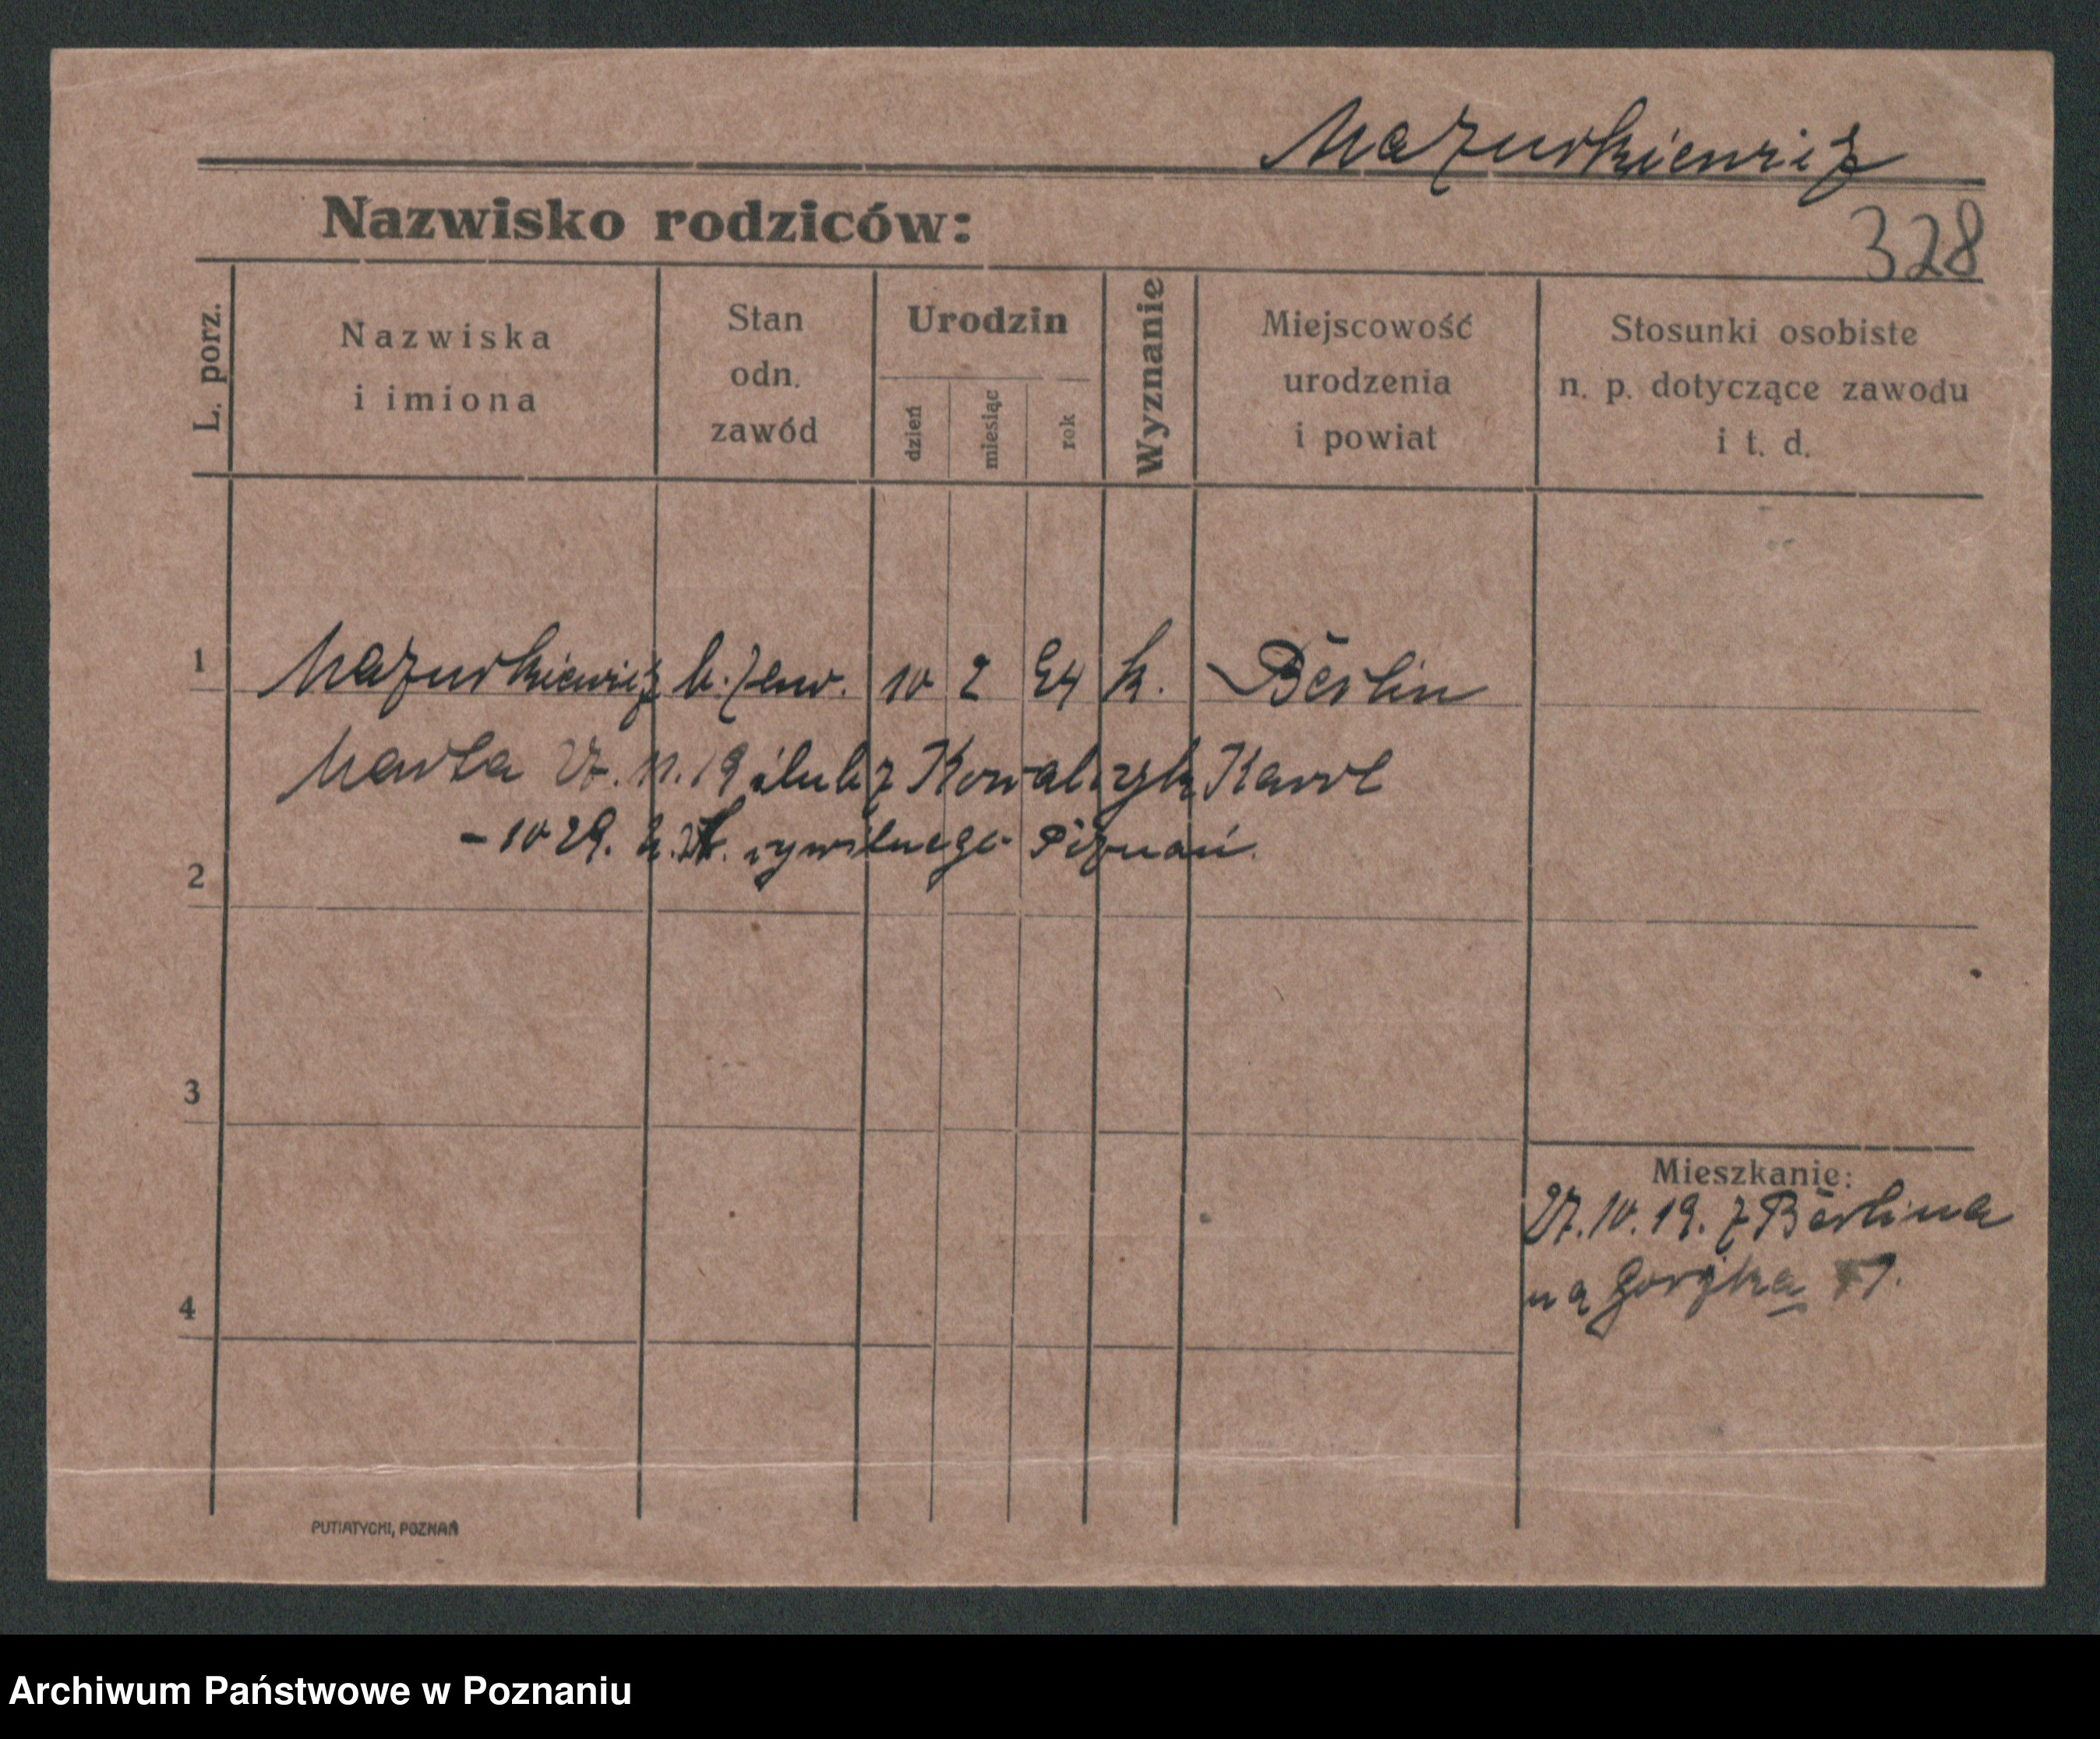 Mazurkiewicz
Nazwisko rodziców:
328
L. porz.
Nazwiska
i imiona
Stan
odn.
zawód
Urodzin
dzień
miesiąc
rok
Wyznanie
Miejscowość
urodzenia
i powiat
Stosunki osobiste
n. p. dotyczące zawodu
i t. d.
1 Mazurkiewicz b. zaw. 10 2 94 k. Berlin
Marta 27. 11. 19 ślub z Kowalczyk Karol
- 1029. cywilnego Poznań.
2
3
Mieszkanie:
27. 10. 19. z Berlina
na
4
PUTIATYCKI, POZNAŃ
Archiwum Państwowe w Poznaniu